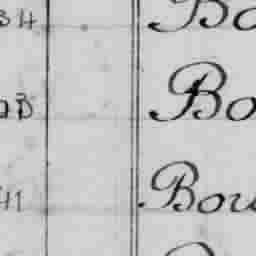 34 Bo
Bo
41 Bou